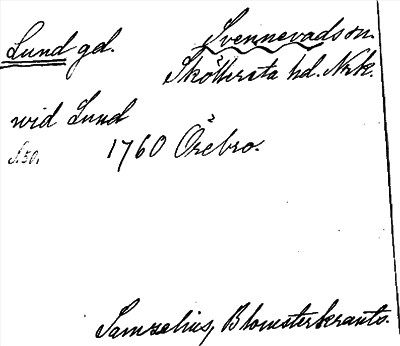 Lund gd. Svennevads sn.
Sköllersta hd. Nrk.
wid Lund
S. 30. 1760 Örebro.
Samzelius, Blomsterkrants.